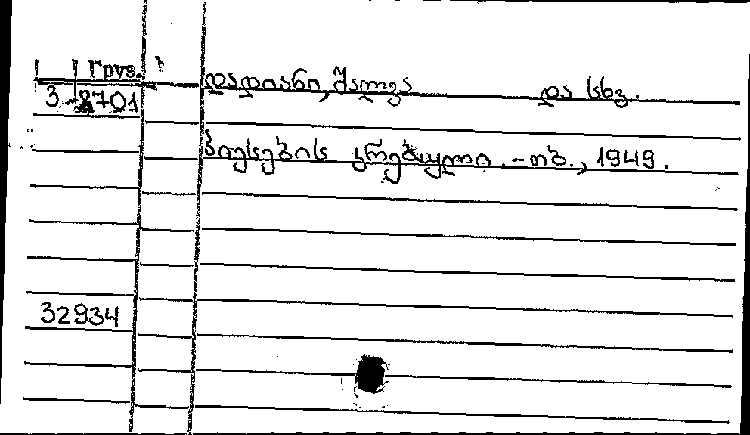 დადიანი, შალვა და სხვ.
3-8701
პიესების კრებული. - თბ., 1949.
32934